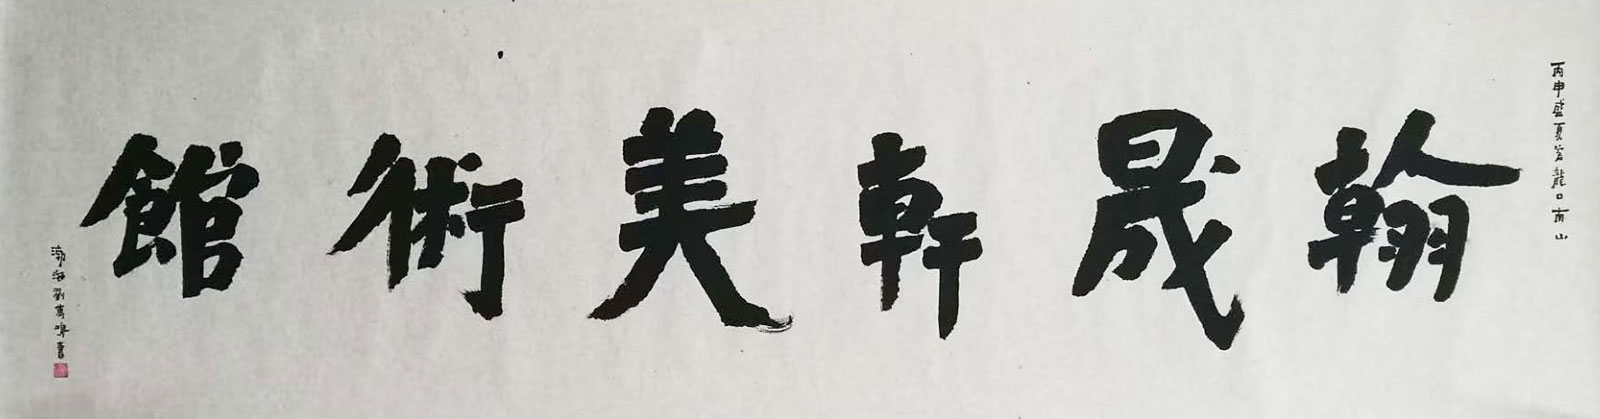 丙申盛夏客龍口南山
翰晟軒美術館
渤海劉萬鳴書